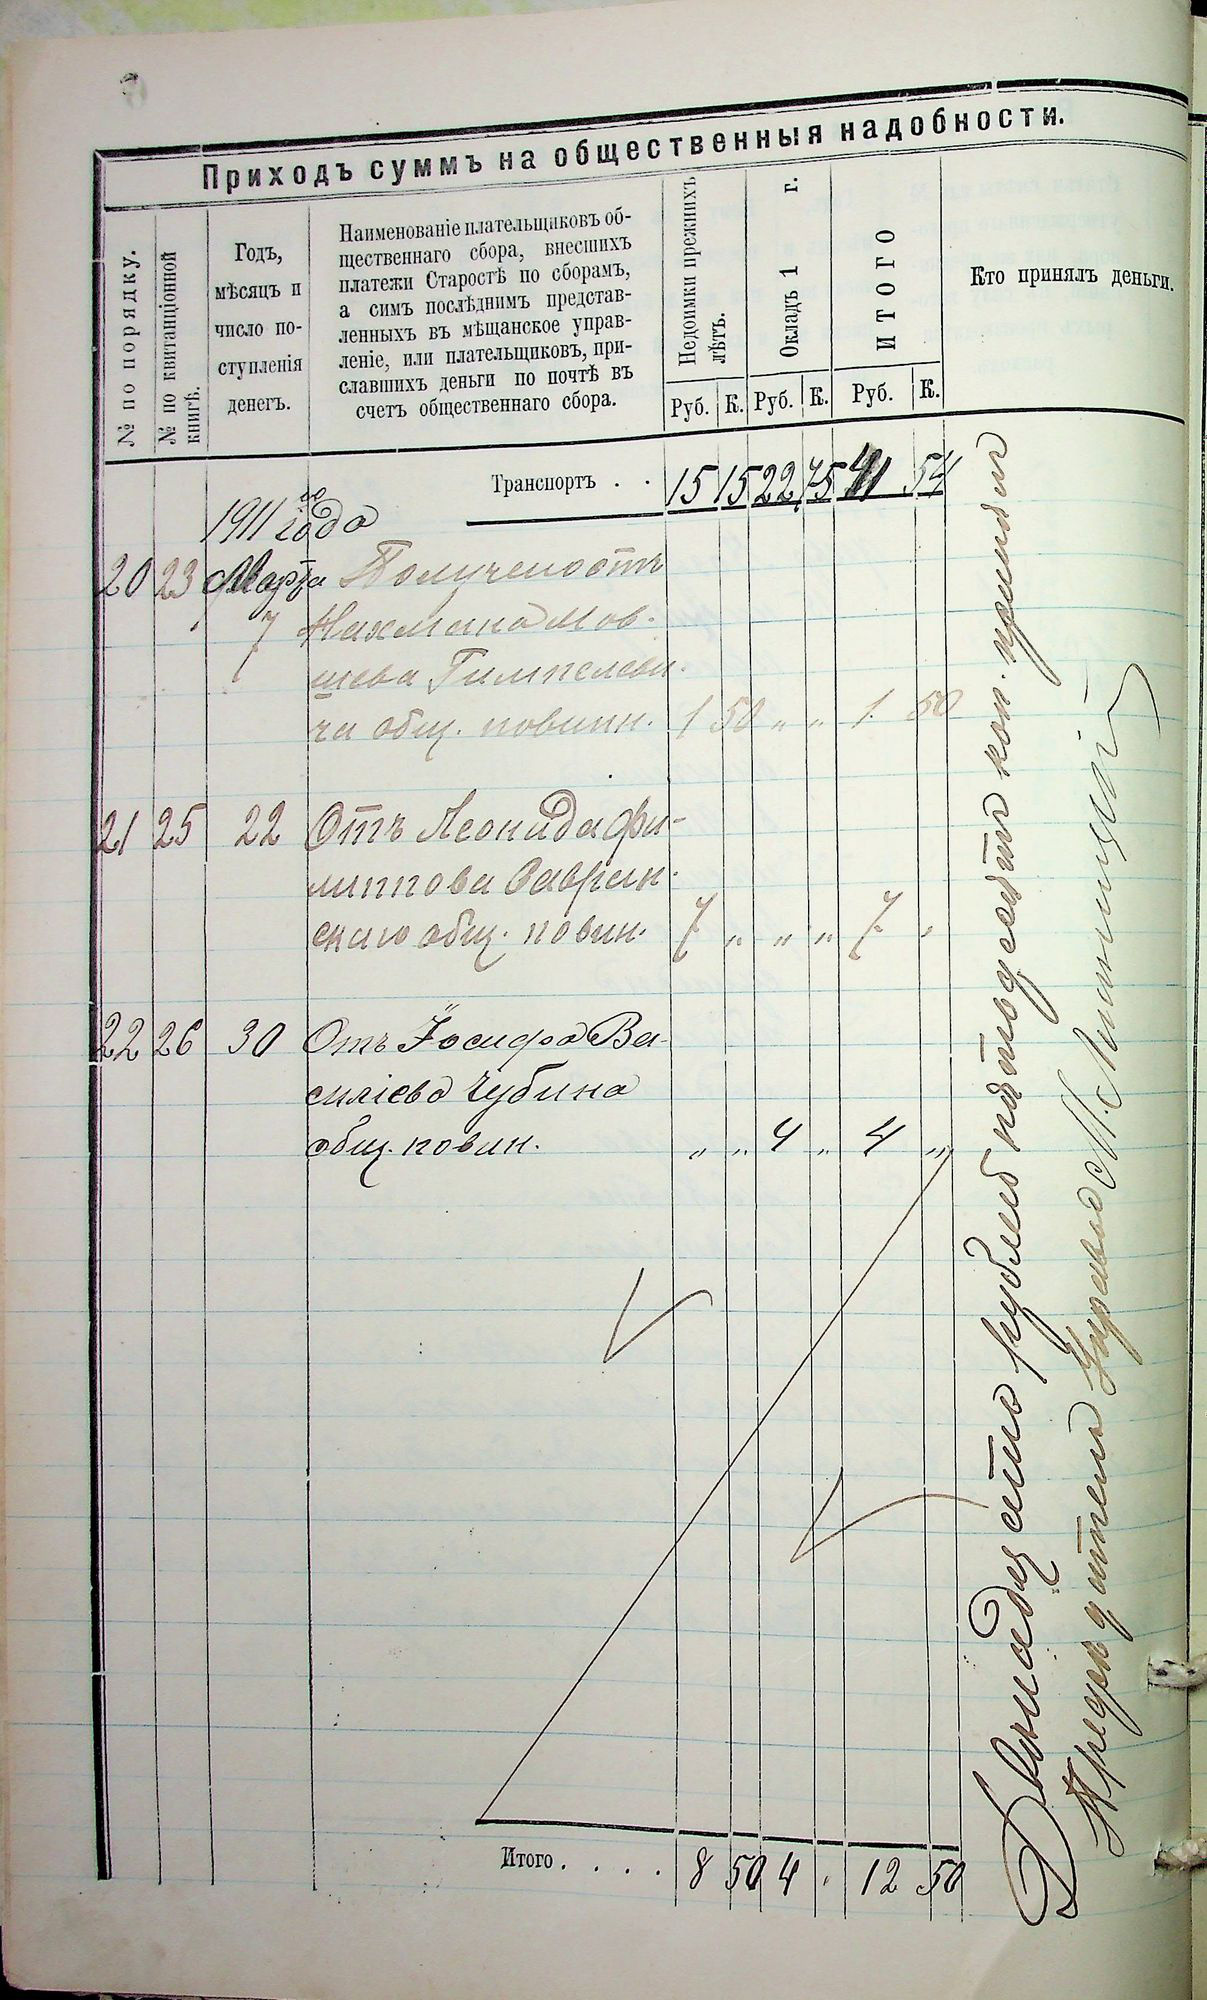 Приходъ суммъ на общественныя надобности.
№ по порядку.
№ по квитанціонной
книгѣ.
Годъ,
мѣсяцъ и
число по-
ступленія
денегъ.
Наименованіе плательщиковъ об-
щественнаго сбора, внесшихъ
платежи Старостѣ по сборамъ,
а симъ послѣднимъ представ-
ленныхъ въ мѣщанское управ-
леніе, или плательщиковъ, при-
славшихъ деньги по почтѣ въ
счетъ общественнаго сбора.
Недоимки прежнихъ
лѣтъ.
Окладъ 1 г.
ИТОГО
Кто принялъ деньги.
Руб. К. Руб. К. Руб. К.
Транспортъ . . 15 15 22 75 41 54
1911 го года
20 23 Марта Получено отъ
7 Нахмана Мов-
шева Гимпелеви-
ча общ. повинн. 1 50 „ „ 1. 50
21 25 22 Отъ Леонида Фи-
липпова Савран-
скаго общ. повин. 7 „ „ „ 7. „
22 26 30 Отъ Іосифа Ва-
силіева Чубина
общ. повин. „ „ 4 „ 4 „
Итого . . . . 8 50 4 „ 12 50
Двѣнадцать рублей пятьдесятъ коп. принялъ
Предсѣдатель Управы М.